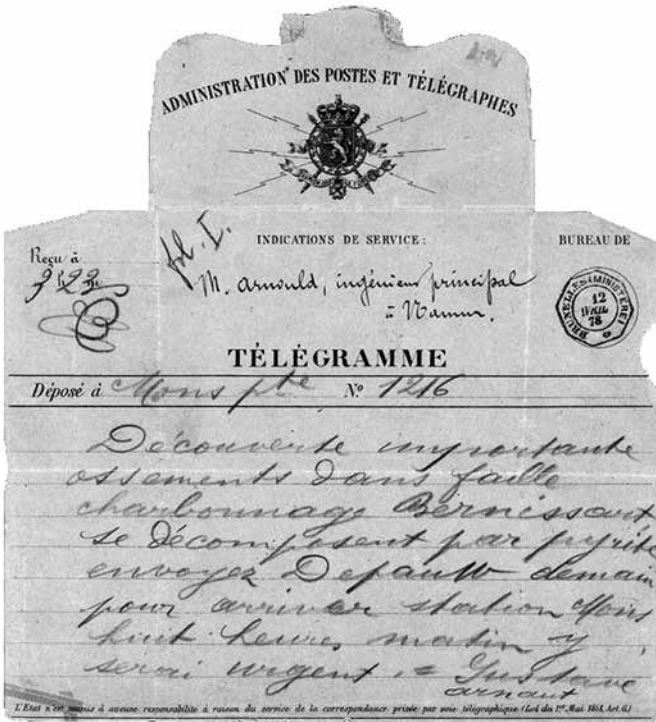 ADMINISTRATION DES POSTES ET TÉLÉGRAPHES
INDICATIONS DE SERVICE:
BUREAU DE
Reçu à
3 h 22 m
M. Arnould, ingénieur principal
à Namur.
BRUXELLES (MINISTÈRE)
12
AVRIL
78
TÉLÉGRAMME
Déposé à Mons pte Nº 1216
Découverte importante
ossements dans faille
charbonnage Bernissart
se décomposent par pyrite
envoyez Depauw demain
pour arriver station Mons
huit heures matin y
serai urgent = Gustave
arnaut
L'Etat n'est soumis à aucune responsabilité à raison du service de la correspondance privée par voie télégraphique (Loi du 1er Mai 1851, Art. 6.)